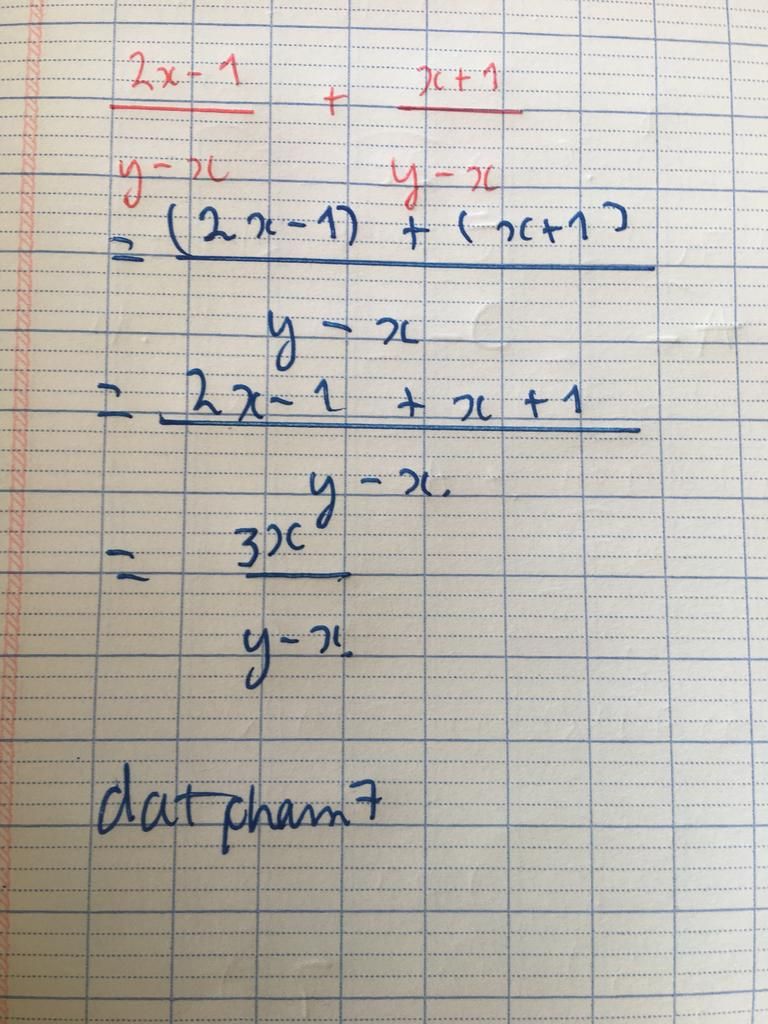 2x-1 / y-x + x+1 / y-x
= (2x-1) + (x+1) / y-x
= 2x-1 + x+1 / y-x.
= 3x / y-x.
datpham7